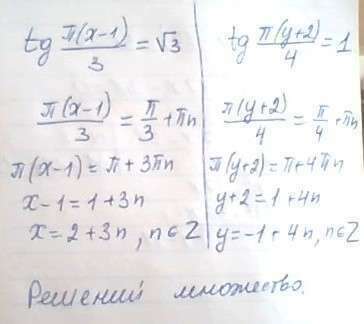 tg π(x-1)/3 = √3
π(x-1)/3 = π/3 + πn
π(x-1) = π + 3πn
x-1 = 1 + 3n
x = 2 + 3n, n∈Z
tg π(y+2)/4 = 1
π(y+2)/4 = π/4 + πn
π(y+2) = π + 4πn
y+2 = 1 + 4n
y = -1 + 4n, n∈Z
Решений множество.